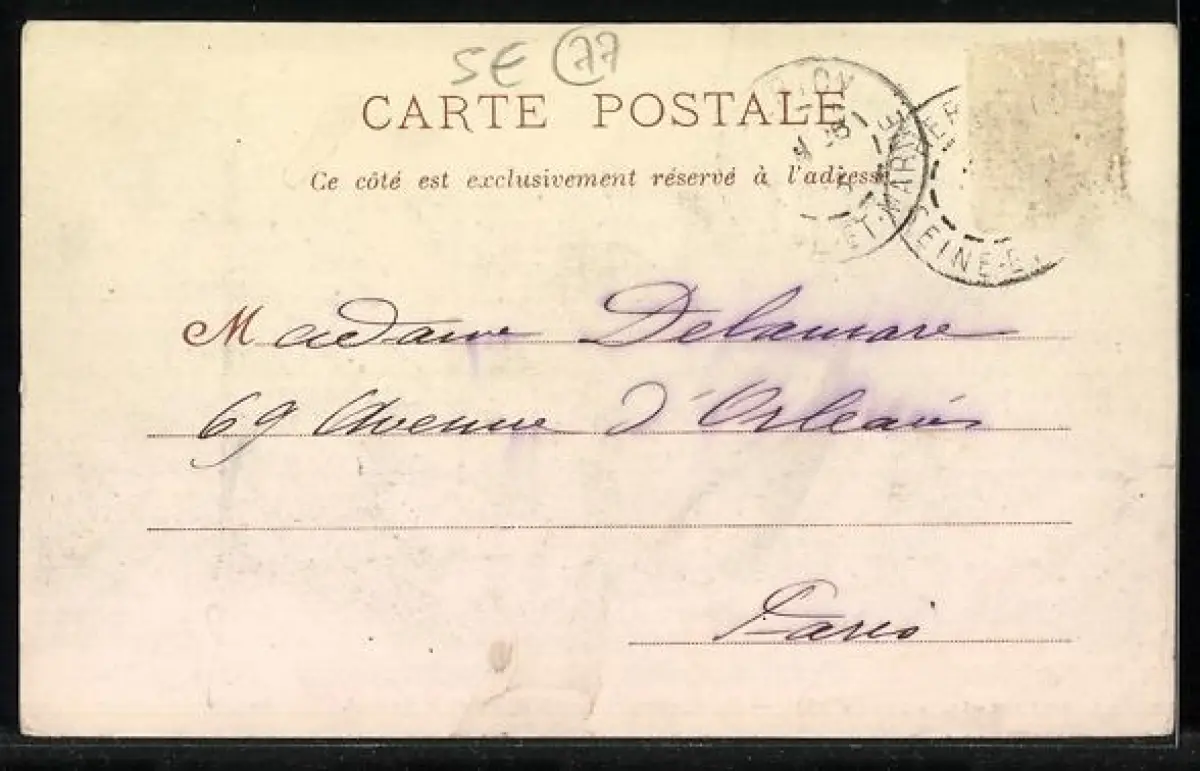 SE 77
CARTE POSTALE
Ce côté est exclusivement réservé à l'adresse
ET-MARNE
SEINE-E
Madame Delamare
69 Avenue d'Orléans
Paris